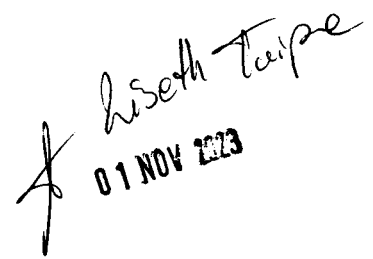 Liseth Taipe
01 NOV 2023